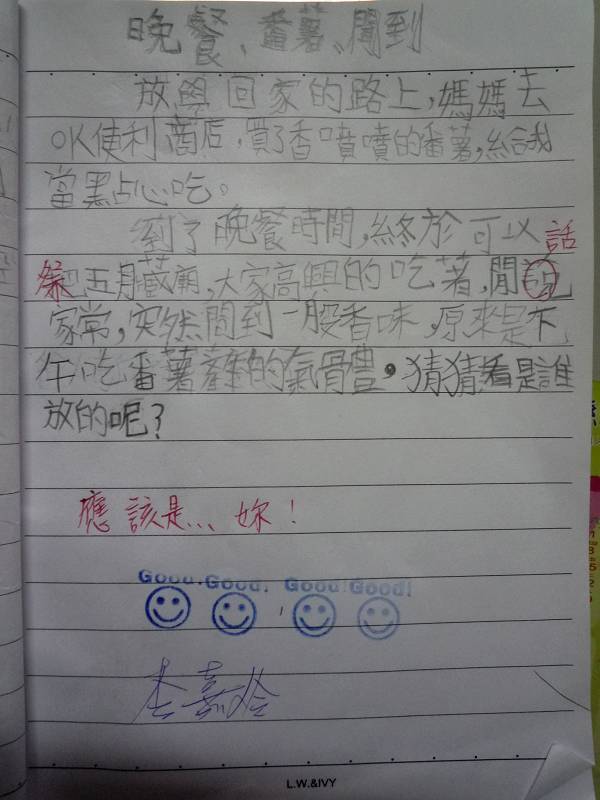 晚餐、番薯、聞到
放學回家的路上,媽媽去
OK便利商店,買了香噴噴的番薯,給我
當點心吃。
到了晚餐時間,終於可以 話
祭五臟廟,大家高興的吃著,閒說
家常,突然聞到一股香味,原來是下
午吃番薯的氣體,猜猜看是誰
放的呢?
應該是... 妳!
Good. Good. Good! Good!
L.W.&IVY